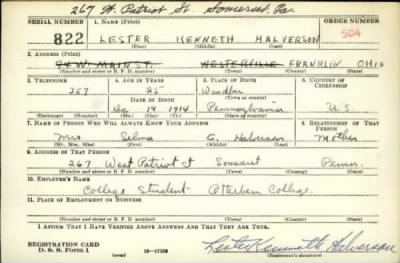 267 W. Patriot St. Somerset, Pa.
SERIAL NUMBER 1. NAME (Print) ORDER NUMBER
822 LESTER KENNETH HALVERSON 504
(First) (Middle) (Last)
2. ADDRESS (Print)
74 W. MAIN ST. WESTERVILLE FRANKLIN OHIO
(Number and street or R. F. D. number) (Town) (County) (State)
3. TELEPHONE 4. AGE IN YEARS 5. PLACE OF BIRTH 6. COUNTRY OF CITIZENSHIP
257 25 Windber
DATE OF BIRTH (Town or county)
14 1914 Pennsylvania U.S.
(Mo.) (Day) (Yr.) (State or country)
7. NAME OF PERSON WHO WILL ALWAYS KNOW YOUR ADDRESS 8. RELATIONSHIP OF THAT PERSON
Mrs Selma G. Halverson Mother
(Mr., Mrs., Miss) (First) (Middle) (Last)
9. ADDRESS OF THAT PERSON
267 West Patriot St Somerset Penn.
(Number and street or R. F. D. number) (Town) (County) (State)
10. EMPLOYER'S NAME
College Student Otterbein College.
11. PLACE OF EMPLOYMENT OR BUSINESS
(Number and street or R. F. D. number) (Town) (County) (State)
I AFFIRM THAT I HAVE VERIFIED ABOVE ANSWERS AND THAT THEY ARE TRUE.
REGISTRATION CARD
D. S. S. FORM 1 16—17105 Lester Kenneth Halverson
(Registrant's signature)